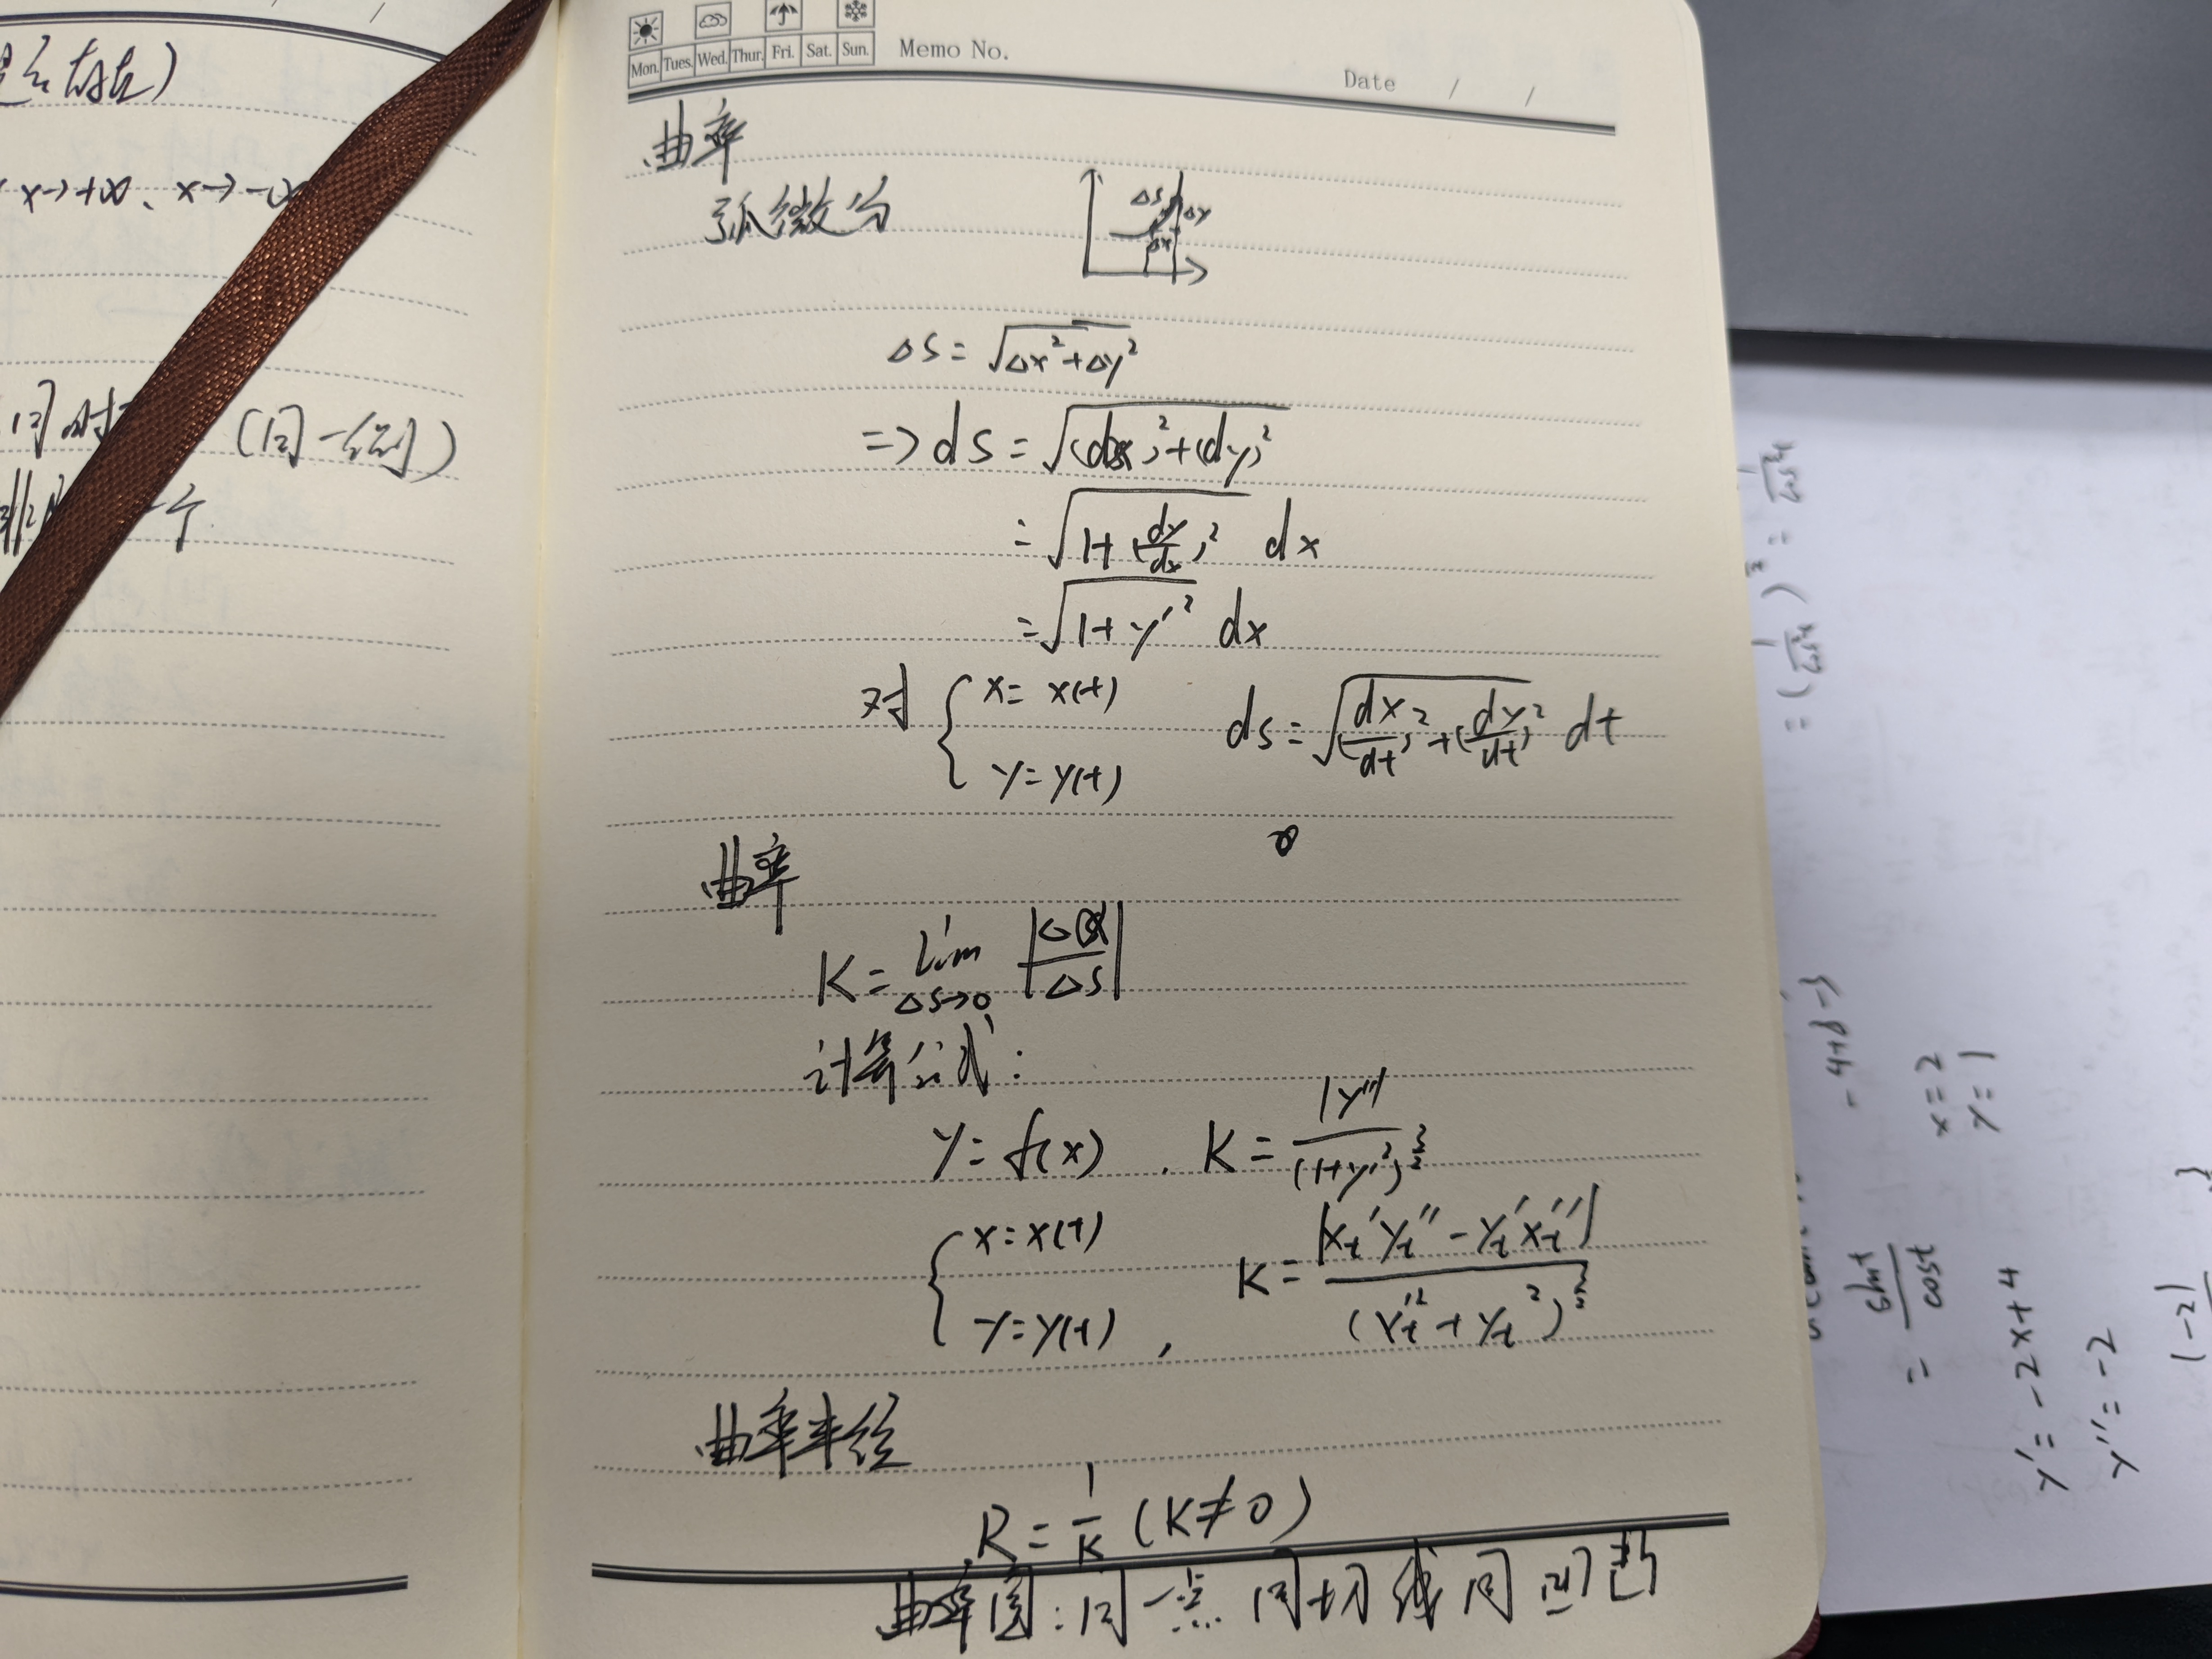 x→+∞、x→-∞
(同一个例)
Mon. Tues. Wed. Thur. Fri. Sat. Sun. Memo No.
Date / /
曲率
弧微分
ΔS Δy
Δx
ΔS=√(Δx²+Δy²)
=> dS=√((dx)²+(dy)²)
=√(1+(dy/dx)²) dx
=√(1+y'²) dx
对 { x=x(t) ds=√((dx/dt)²+(dy/dt)²) dt
y=y(t)
曲率
K=lim ΔS→0 |Δα/ΔS|
计算公式:
y=f(x) , K=|y''|/(1+y'²)^(3/2)
{ x=x(t)
y=y(t) , K=|x_t'y_t''-y_t'x_t''|/(x_t'²+y_t'²)^(3/2)
曲率半径
R=1/K (K≠0)
曲率圆:同一点 同切线 同凹凸
-4+8-3
x=2
y=1
= sint/cost
y'=-2x+4
y''=-2
|-2|